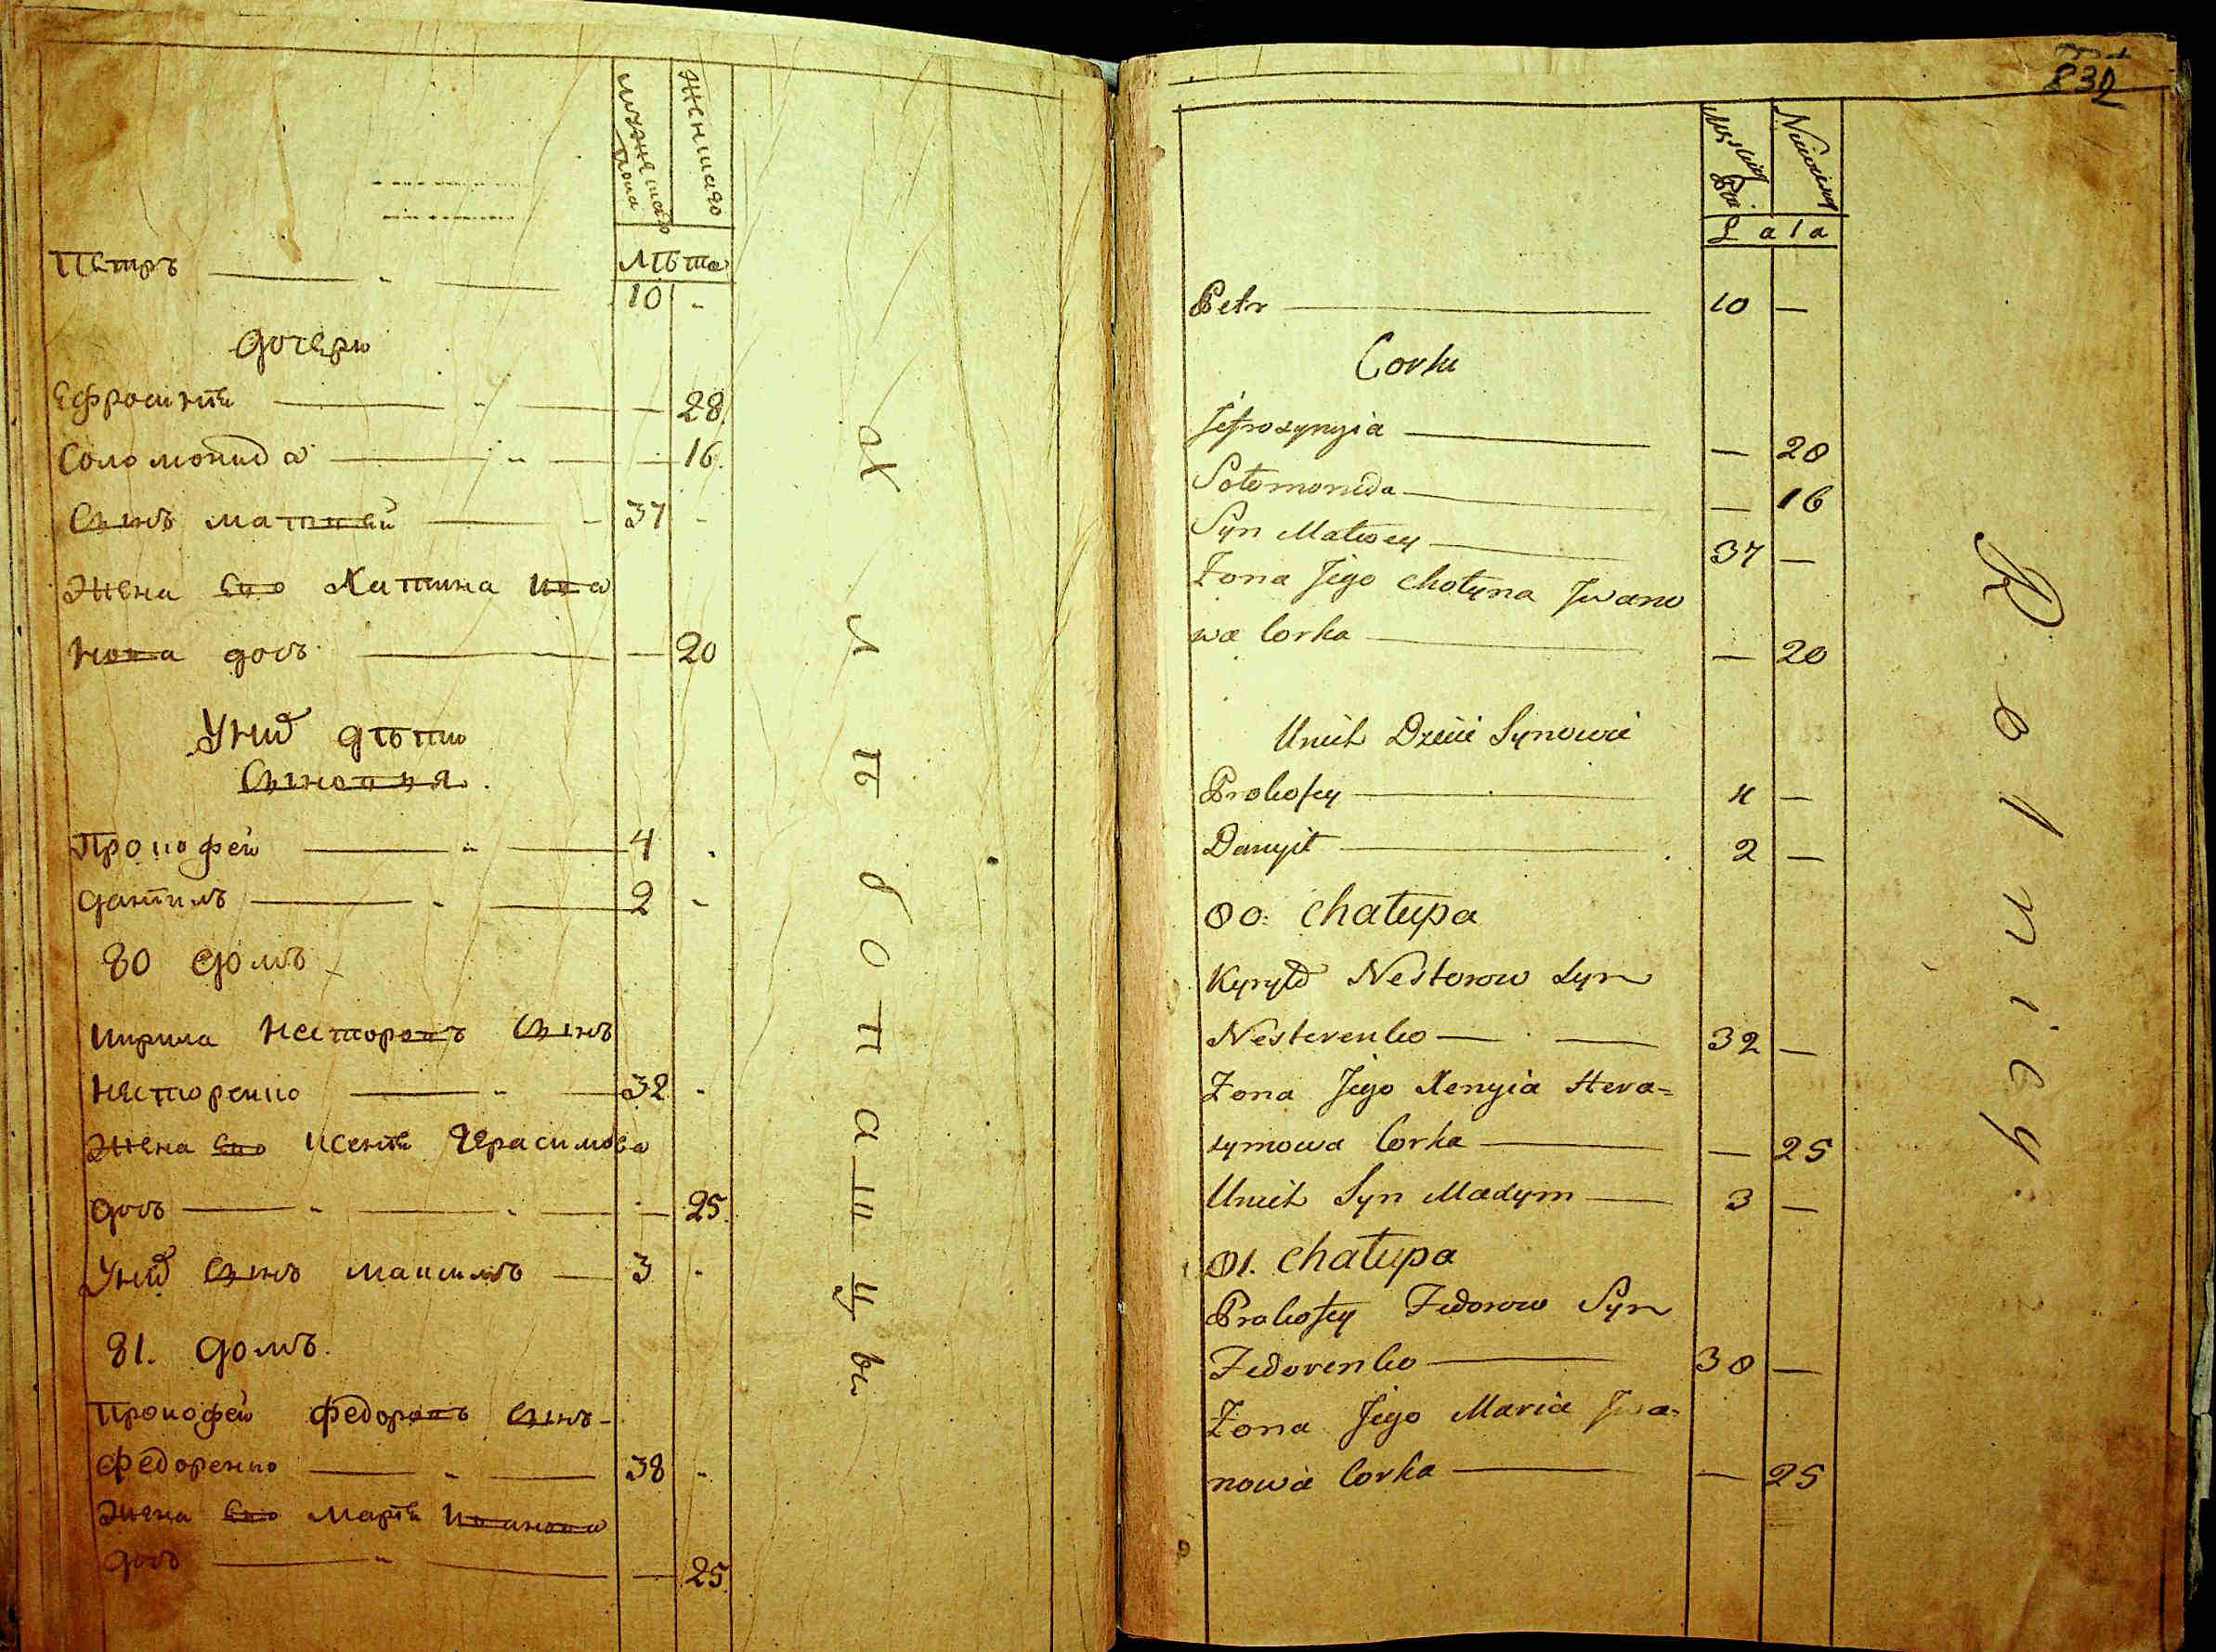 Мужеска
пола
Женшаго
лѣта
Петръ 10 -
дочери
Ефросинѣи — 28
Соломонида — 16
Сынъ матвей 37 -
Жена Его Хатина Ива
нова дочь — 20
У нихъ дѣти
Сыновья
Прокофей 4 -
данiилъ 2 -
80 домъ
Кирила Несторовъ Сынъ
Несторенко 32 -
Жена Его Ксенiя Герасимова
дочь — 25
У нихъ Сынъ максимъ 3 -
81. домъ
Прокофей Федоровъ Сынъ
Федоренко 38 -
Жена Его Марiя Иванова
дочь — 25
Хлѣбопашцы
832
Męskiej
Płci
Niewieściej
Lata
Petr 10 —
Corki
Jefrozynyia — 28
Sołomonida — 16
Syn Matwey 37 —
Żona Jego Chotyna Jwano
wa Corka — 20
Unich Dzieci Synowie
Prokofey 4 —
Danyił 2 —
80. Chałupa
Kyryło Nestorow Syn
Nesterenko 32 —
Żona Jego Xenyia Hera=
symowa Corka — 25
Unich Syn Maxym 3 —
81. Chałupa
Prokofey Fedorow Syn
Fedorenko 38 —
Żona Jego Maria Jwa=
nowa Corka — 25
Rolnicy.